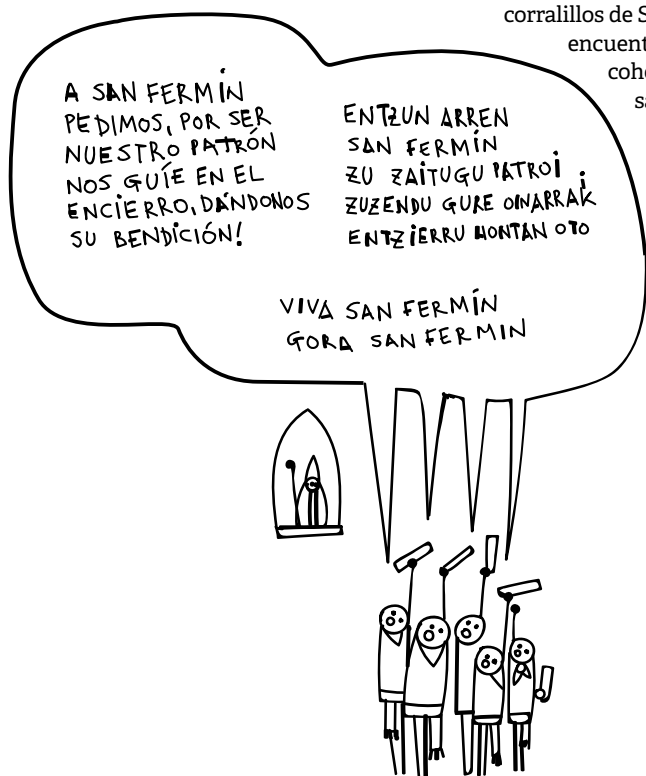 corralillos de S
encuent
coh
sa
A SAN FERMÍN
PEDIMOS, POR SER
NUESTRO PATRÓN
NOS GUÍE EN EL
ENCIERRO, DÁNDONOS
SU BENDICIÓN!
ENTZUN ARREN
SAN FERMÍN
ZU ZAITUGU PATROI
ZUZENDU GURE OINARRAK
ENTZIERRU HONTAN OTO
VIVA SAN FERMÍN
GORA SAN FERMIN